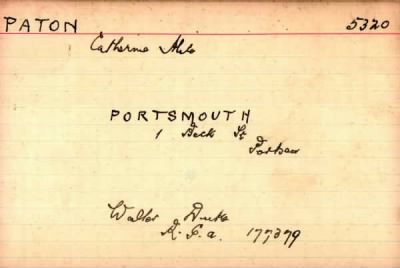 PATON 5320
Catherine Mrs
PORTSMOUTH
1 Beck St
Portsea
Walter Duke
R. F. a. 177379